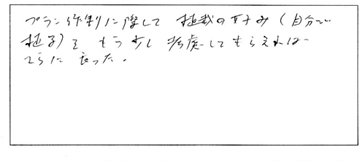 プラン作制に際して 植栽の好み（自分で
植る）をもう少し考慮してもらえれば
さらに良かった。